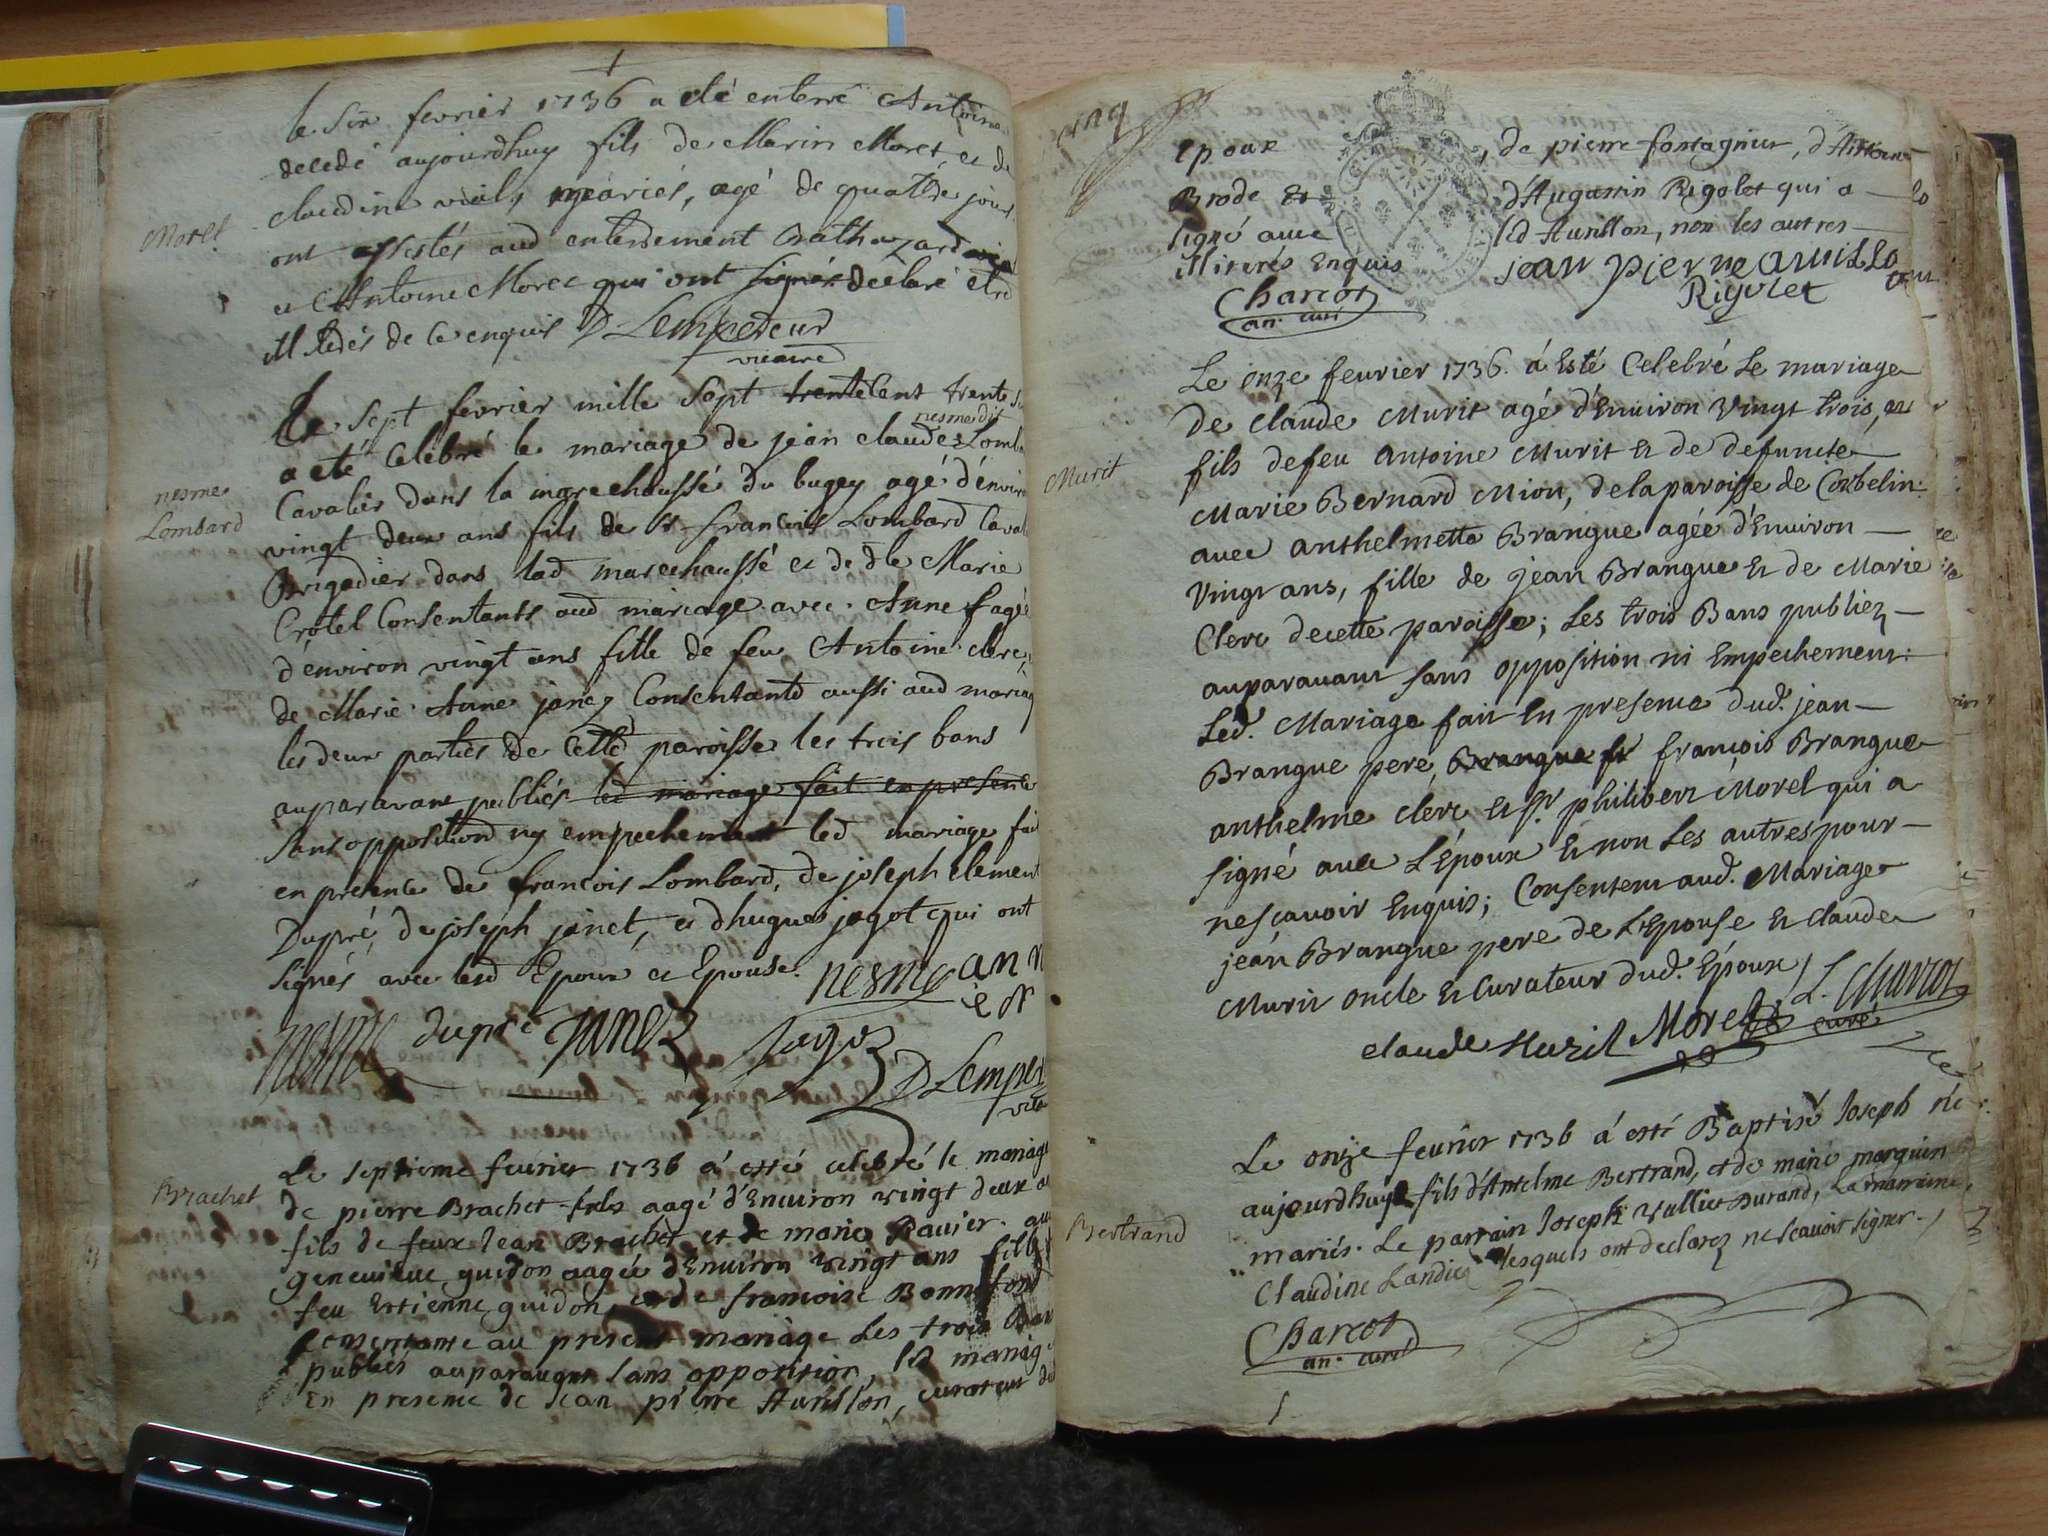 le six fevrier 1736 a eté enterré Antoine
decedé aujourdhuy fils de Marin Moret, et de
claudine viali mariés, agé de quattre jours
Moret
ont assistés aud enterrement Balthazard
et Antoine Moret qui ont signés declaré etre
illiterés de ce enquis D Lempereur
vicaire
Le sept fevrier mille sept trentecent trente six
nesme dit
a eté celebré le mariage de jean claude Lomb
nesme
Lombard
Cavalier dans la marechaussé du bugey agé d'enviro
vingt deux ans fils de Sr francois Lombard Caval
Brigadier dans lad marechaussé et de dle Marie
Crotel Consentants aud mariage avec Anne fagé
d'environ vingt ans fille de feu Antoine clerc,
de Marie Anne janez Consentante aussi aud mariag
les deux parties de Cette paroisse les trois bans
auparavant publiés led mariage fait en presence
sans opposition ny empechement led mariage fait
en presence de francois Lombard, de joseph clement
Dupré, de joseph janet, et dhugues jagot qui ont
signés avec lesd Epoux et Epouse. nesme ann
nesme dupré janez jagoz
D Lemper
vica
Le septieme fevrier 1736 á esté celebré le mariag
Brachet
de pierre Brachet fils aagé d'Environ vingt deux a
fils de feux Jean Brachet et de marie Ravier. au
genevieve guidon aagée d'Environ vingt ans fille
feu Estienne guidon, et de francoise Bonnefond
Consentante au present mariage Les trois Ban
publiés auparavant sans opposition, led mariag
En presence de Jean pierre Aurillon, curateur dud
cinq
epoux, de pierre fontagnier, d'Antoine
Brode et d'Augustin Rigolet qui a
signé avec led Aurillon, non les autres
illiterés Enquis jean pierre aurillo
Rigolet
Charcot
an. curé
Le onze fevrier 1736. á Esté Celebré Le mariage
de claude Murit agé d'Environ Vingt trois, et
Murit
fils defeu antoine Murit et de defuncte
Marie Bernard Mion, delaparoisse de Corbelin.
avec anthelmette Brangue agée d'Environ
Vingt ans, fille de jean Brangue et de Marie
Clerc decette paroisse; Les trois Bans publiez
auparavant sans opposition ni Empechement:
Led. Mariage fait En presence dud. jean
Brangue pere, Brangue fr françois Brangue
anthelme clerc et Sr. philibert Morel qui a
signé avec L'Époux et non Les autres pour
nesçavoir Enquis; Consentent aud. Mariage
jean Brangue pere de L'Epouse et claude
Murit oncle et Curateur dud. Epoux / L. Charcot
curé
claude Murit Morel
Le onze fevrier 1736 á esté Baptisé Joseph né
aujourdhuy fils d'Antelme Bertrand, et de marie marguin
Bertrand
mariés. Le parrain Joseph vullier Durand, La marraine,
Claudine Landier lesquels ont declarez nescavoir signer.
Charcot
an. curé